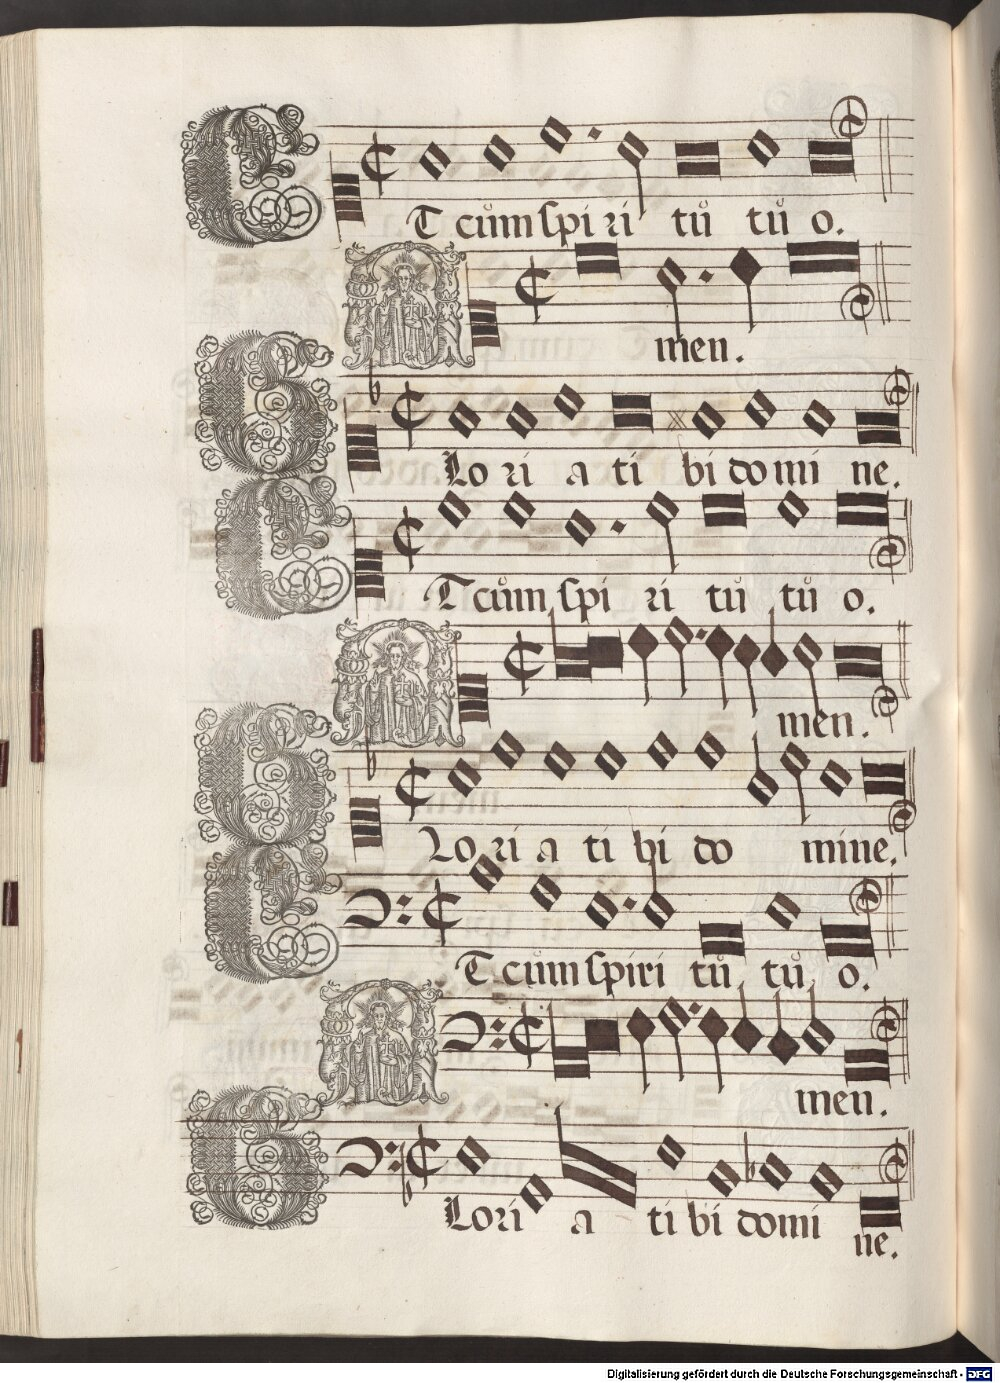 ET cũm spi ri tũ tũ o.
Amen.
GLo ri a ti bi domi ne.
ET cũm spi ri tũ tũ o.
Amen.
GLo ri a ti bi do mine.
ET cũm spiri tũ tũ o.
Amen.
GLori a ti bi domi
ne.
Digitalisierung gefördert durch die Deutsche Forschungsgemeinschaft - DFG